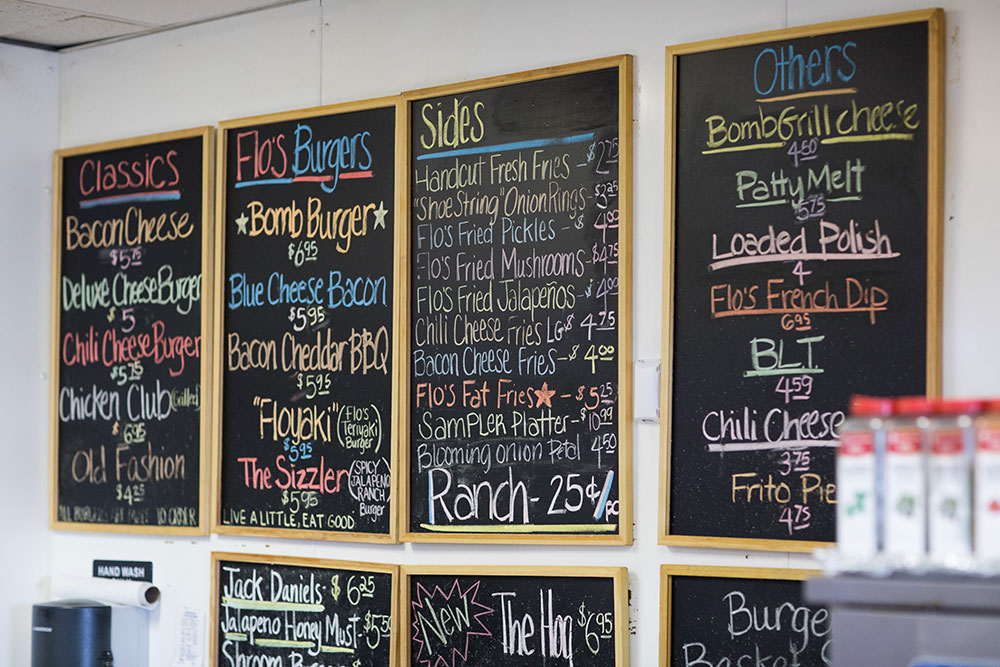 Classics
Bacon Cheese
$5.75
Deluxe Cheese Burger
$5
Chili Cheese Burger
$5.75
Chicken Club (Grilled)
$6.95
Old Fashion
$4.25
Flo's Burgers
Bomb Burger
$6.95
Blue Cheese Bacon
$5.95
Bacon Cheddar BBQ
$5.95
"Floyaki" (Flo's Teriyaki Burger)
$5.95
The Sizzler (SPICY JALAPENO RANCH Burger)
$5.95
LIVE A LITTLE, EAT GOOD
Sides
Handcut Fresh Fries - $2.75
"Shoe String" Onion Rings -
Flo's Fried Pickles - $4.00
Flo's Fried Mushrooms - $4.75
Flo's Fried Jalapeños - $4.00
Chili Cheese Fries LG $4.75
Bacon Cheese Fries - $4.00
Flo's Fat Fries - $5.25
Sampler Platter - $10.99
Blooming onion Petal 4.50
Ranch - 25¢/pc
Others
Bomb Grill cheese
4.50
Patty Melt
5.75
Loaded Polish
4
Flo's French Dip
6.95
BLT
4.59
Chili Cheese
3.75
Frito Pie
4.75
HAND WASH
Jack Daniels - $6.25
Jalapeno Honey Must - $5.50
Shroom Burger
New The Hog $6.95
Burger